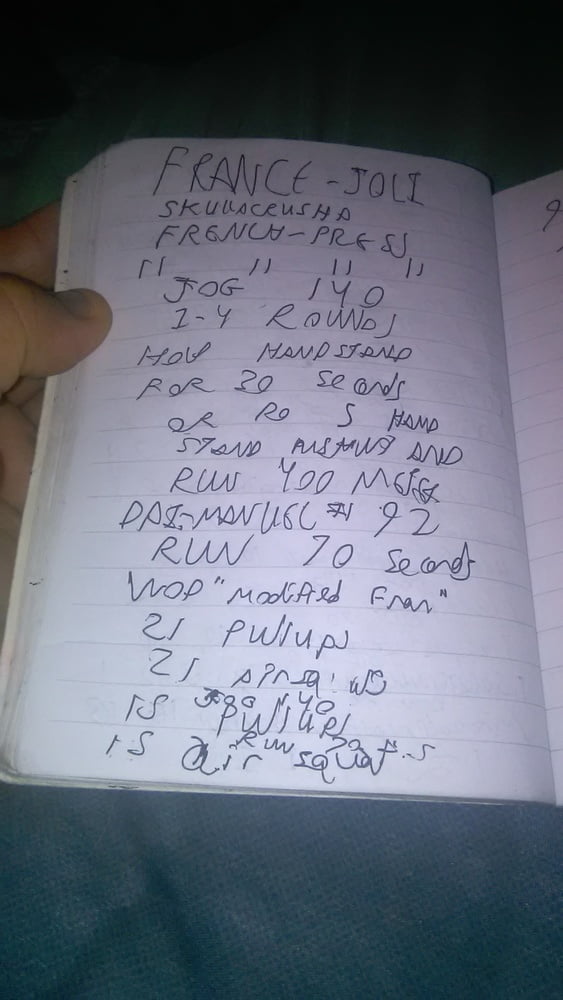 FRANCE-JOLI
SKULLACRUSHA
FRENCH-PRESS
" " " "
JOG 140
1-4 ROUNDS
HOLD HANDSTAND
FOR 30 Seconds
OR RO 5 HAND
STAND AND
RUN 400 METER
92
RUN 70 Seconds
WOD "Modified Fran"
21 Pullups
21
15 Jog 140 Pullups
15 Air squat
RUN